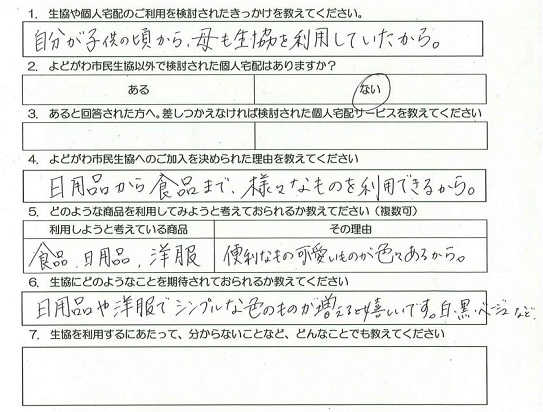 1．生協や個人宅配のご利用を検討されたきっかけを教えてください。
自分が子供の頃から、母も生協を利用していたから。
2．よどがわ市民生協以外で検討された個人宅配はありますか？
ある ない
3．あると回答された方へ。差しつかえなければ検討された個人宅配サービスを教えてください
4．よどがわ市民生協へのご加入を決められた理由を教えてください
日用品から食品まで、様々なものを利用できるから。
5．どのような商品を利用してみようと考えておられるか教えてださい（複数可）
利用しようと考えている商品 その理由
食品、日用品、洋服 便利なもの可愛いものが色々あるから。
6．生協にどのようなことを期待されておられるか教えてください
日用品や洋服でシンプルな色のものが増えると嬉しいです。白・黒・ベージュなど。
7．生協を利用するにあたって、分からないことなど、どんなことでも教えてください